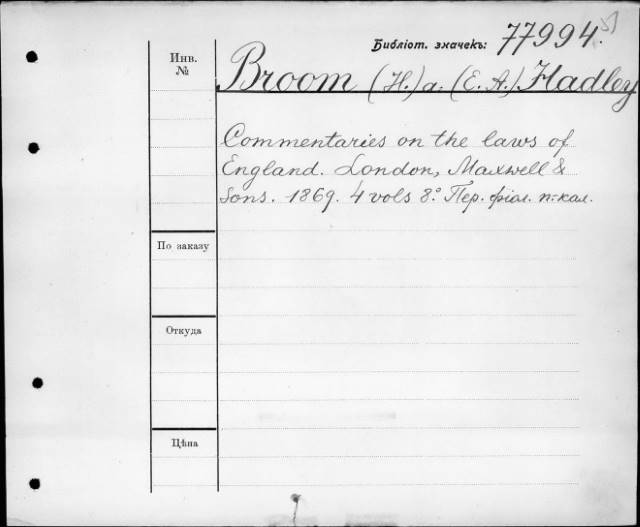 Библіот. значекъ: 77994.
Инв. №
Broom (H.) a. (E. A.) Hadley
Commentaries on the laws of
England. London, Maxwell &
Sons. 1869. 4 vols 8.° Пер. фіол. п.-кал.
По заказу
Откуда
Цѣна